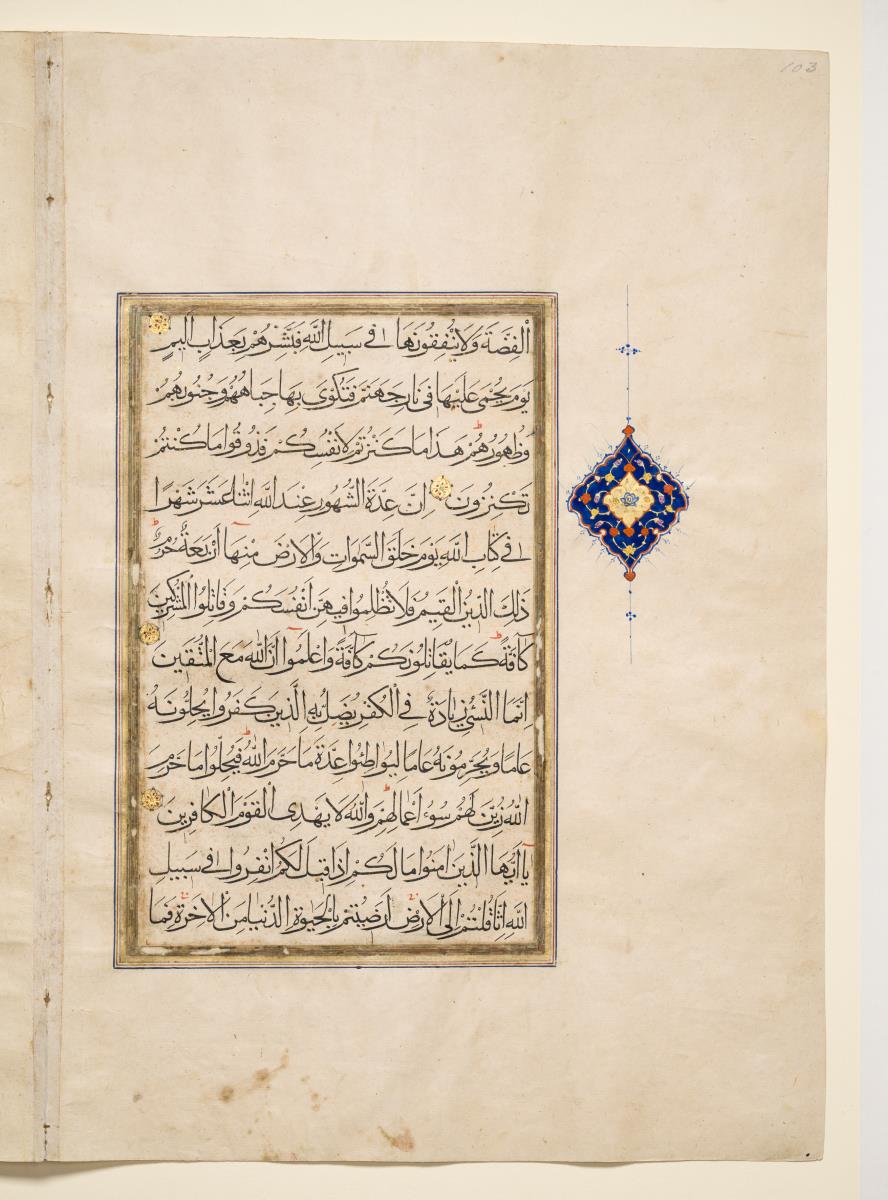 103
اْلفِضَّةَ وَلَا يُنْفِقُونَهَا فِى سَبِيلِ اللّٰهِ فَبَشِّرْهُمْ بِعَذَابٍ اَلِيمٍ
يَوْمَ يُحْمٰى عَلَيْهَا فِى نَارِ جَهَنَّمَ فَتُكْوٰى بِهَا جِبَاهُهُمْ وَجُنُوبُهُمْ
وَظُهُورُهُمْ هٰذَا مَا كَنَزْتُمْ لِاَنْفُسِكُمْ فَذُوقُوا مَا كُنْتُمْ
تَكْنِزُونَ اِنَّ عِدَّةَ الشُّهُورِ عِنْدَ اللّٰهِ اثْنَا عَشَرَ شَهْرًا
فِى كِتَابِ اللّٰهِ يَوْمَ خَلَقَ السَّمٰوَاتِ وَالْاَرْضَ مِنْهَا اَرْبَعَةٌ حُرُمٌ
ذٰلِكَ الدِّينُ الْقَيِّمُ فَلَا تَظْلِمُوا فِيهِنَّ اَنْفُسَكُمْ وَقَاتِلُوا الْمُشْرِكِينَ
كَآفَّةً كَمَا يُقَاتِلُونَكُمْ كَآفَّةً وَاعْلَمُوا اَنَّ اللّٰهَ مَعَ الْمُتَّقِينَ
اِنَّمَا النَّسِىءُ زِيَادَةٌ فِى الْكُفْرِ يُضَلُّ بِهِ الَّذِينَ كَفَرُوا يُحِلُّونَهُ
عَامًا وَيُحَرِّمُونَهُ عَامًا لِيُوَاطِئُوا عِدَّةَ مَا حَرَّمَ اللّٰهُ فَيُحِلُّوا مَا حَرَّمَ
اللّٰهُ زُيِّنَ لَهُمْ سُوءُ اَعْمَالِهِمْ وَاللّٰهُ لَا يَهْدِى الْقَوْمَ الْكَافِرِينَ
يَا اَيُّهَا الَّذِينَ اٰمَنُوا مَا لَكُمْ اِذَا قِيلَ لَكُمُ انْفِرُوا فِى سَبِيلِ
اللّٰهِ اثَّاقَلْتُمْ اِلَى الْاَرْضِ اَرَضِيتُمْ بِالْحَيٰوةِ الدُّنْيَا مِنَ الْاٰخِرَةِ فَمَا